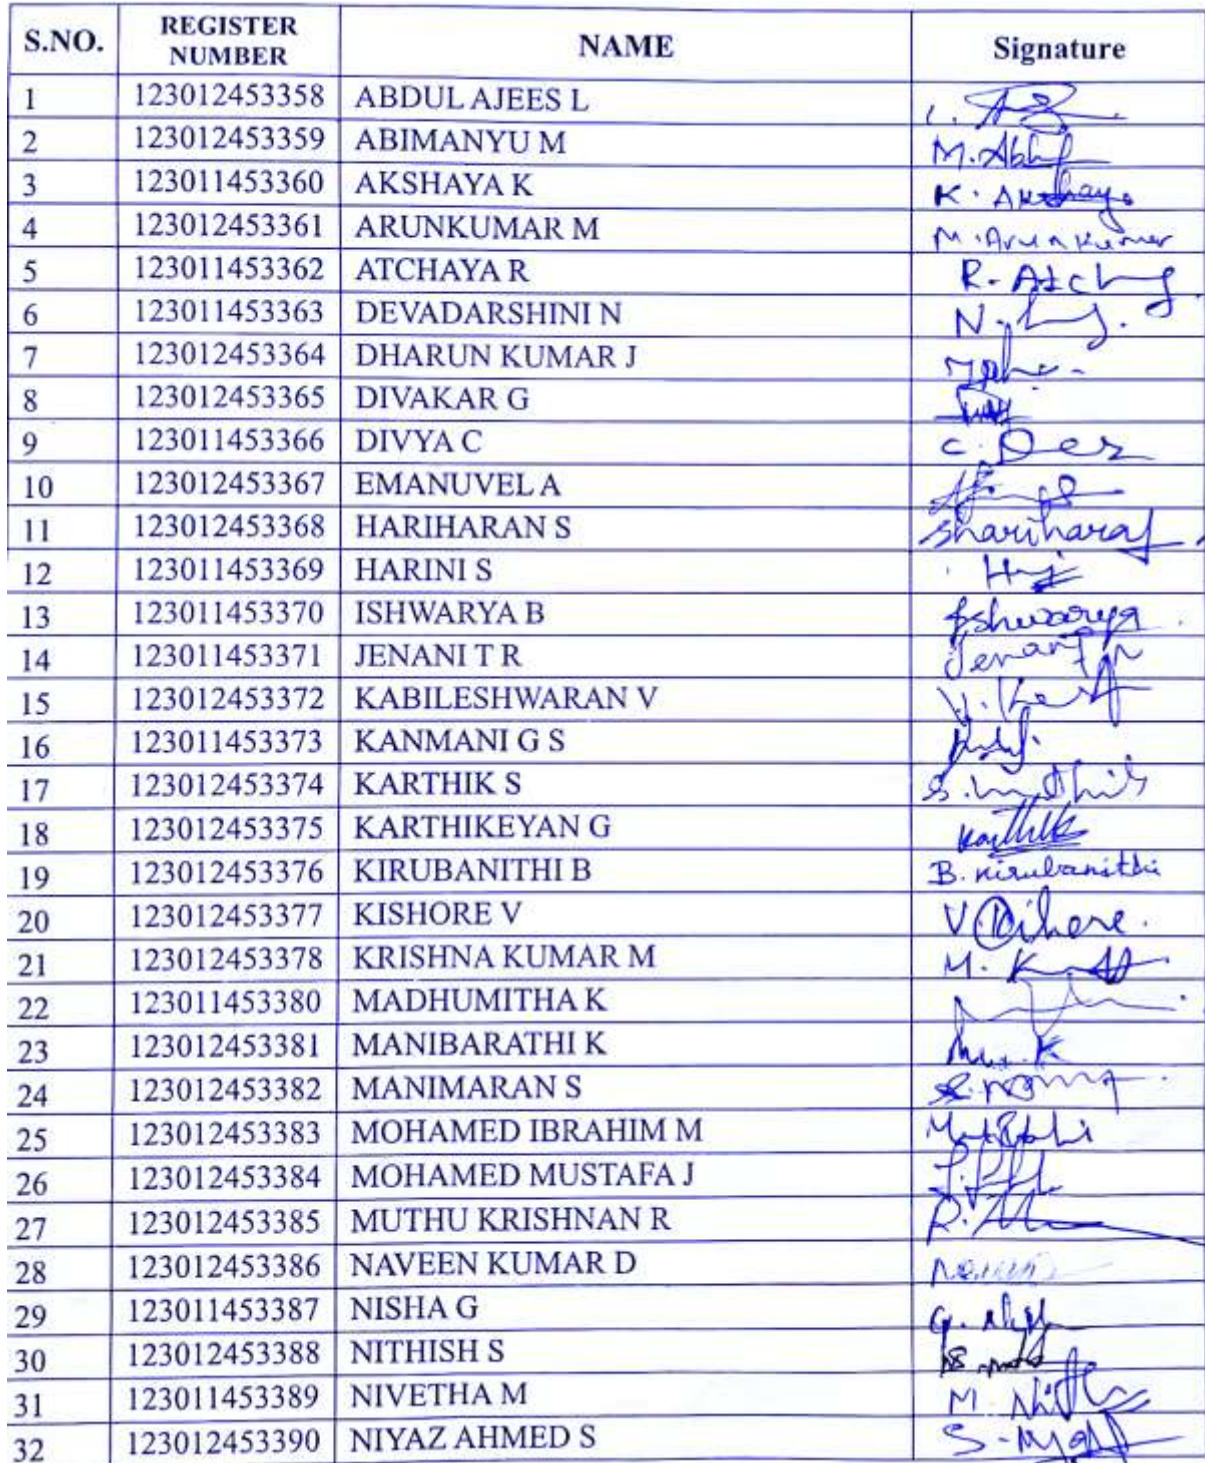 S.NO. REGISTER NUMBER NAME Signature
1 123012453358 ABDUL AJEES L
2 123012453359 ABIMANYU M M.
3 123011453360 AKSHAYA K K. Akshaya
4 123012453361 ARUNKUMAR M M. Arun Kumar
5 123011453362 ATCHAYA R R.
6 123011453363 DEVADARSHINI N N.
7 123012453364 DHARUN KUMAR J
8 123012453365 DIVAKAR G
9 123011453366 DIVYA C C.
10 123012453367 EMANUVEL A
11 123012453368 HARIHARAN S
12 123011453369 HARINI S
13 123011453370 ISHWARYA B Ishwarya
14 123011453371 JENANI T R
15 123012453372 KABILESHWARAN V
16 123011453373 KANMANI G S
17 123012453374 KARTHIK S
18 123012453375 KARTHIKEYAN G
19 123012453376 KIRUBANITHI B B. Kirubanithi
20 123012453377 KISHORE V
21 123012453378 KRISHNA KUMAR M M.
22 123011453380 MADHUMITHA K
23 123012453381 MANIBARATHI K
24 123012453382 MANIMARAN S
25 123012453383 MOHAMED IBRAHIM M
26 123012453384 MOHAMED MUSTAFA J
27 123012453385 MUTHU KRISHNAN R
28 123012453386 NAVEEN KUMAR D
29 123011453387 NISHA G
30 123012453388 NITHISH S
31 123011453389 NIVETHA M M.
32 123012453390 NIYAZ AHMED S